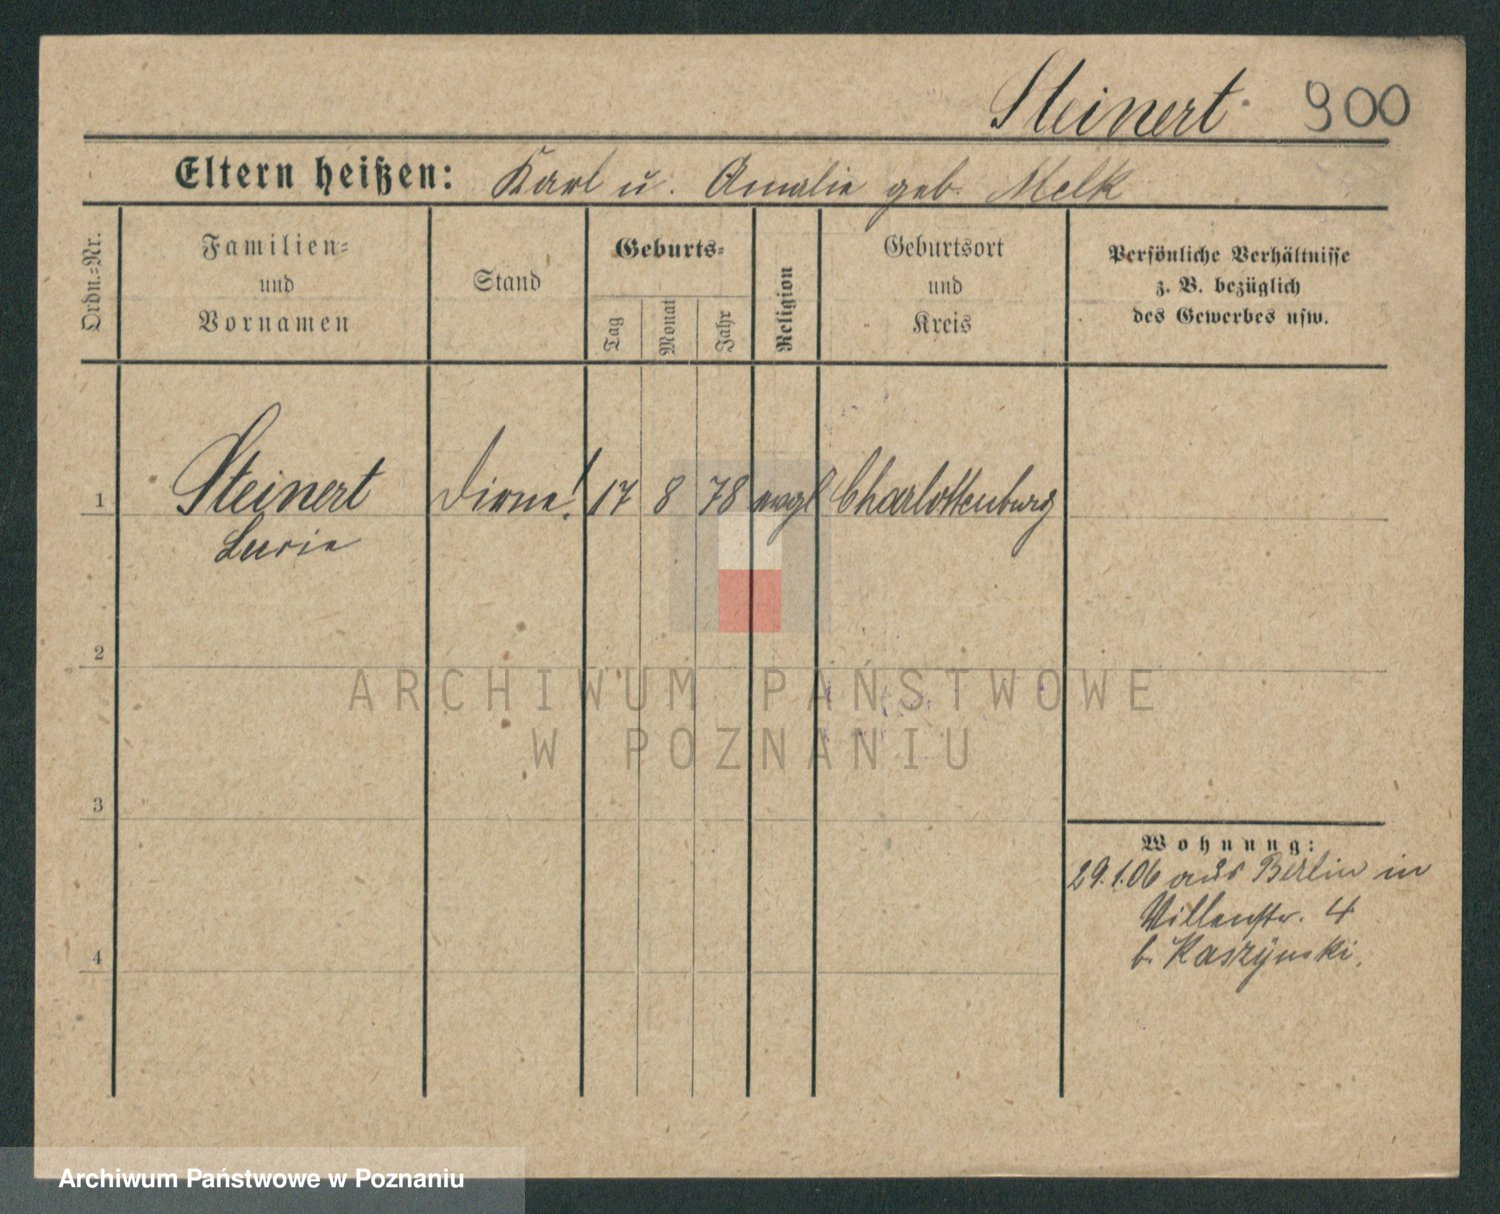 Steinert 900
Eltern heißen: Karl u. Amalie geb. Melk
Ordn.-Nr.
Familien-
und
Vornamen
Stand
Geburts-
Tag
Monat
Jahr
Religion
Geburtsort
und
Kreis
Persönliche Verhältnisse
z. B. bezüglich
des Gewerbes usw.
1 Steinert Dirne! 17 8 78 evgl Charlottenburg
2
3
4
Wohnung:
29.1.06 aus Berlin in
4
b. Kaszynski.
ARCHIWUM PAŃSTWOWE
W POZNANIU
Archiwum Państwowe w Poznaniu